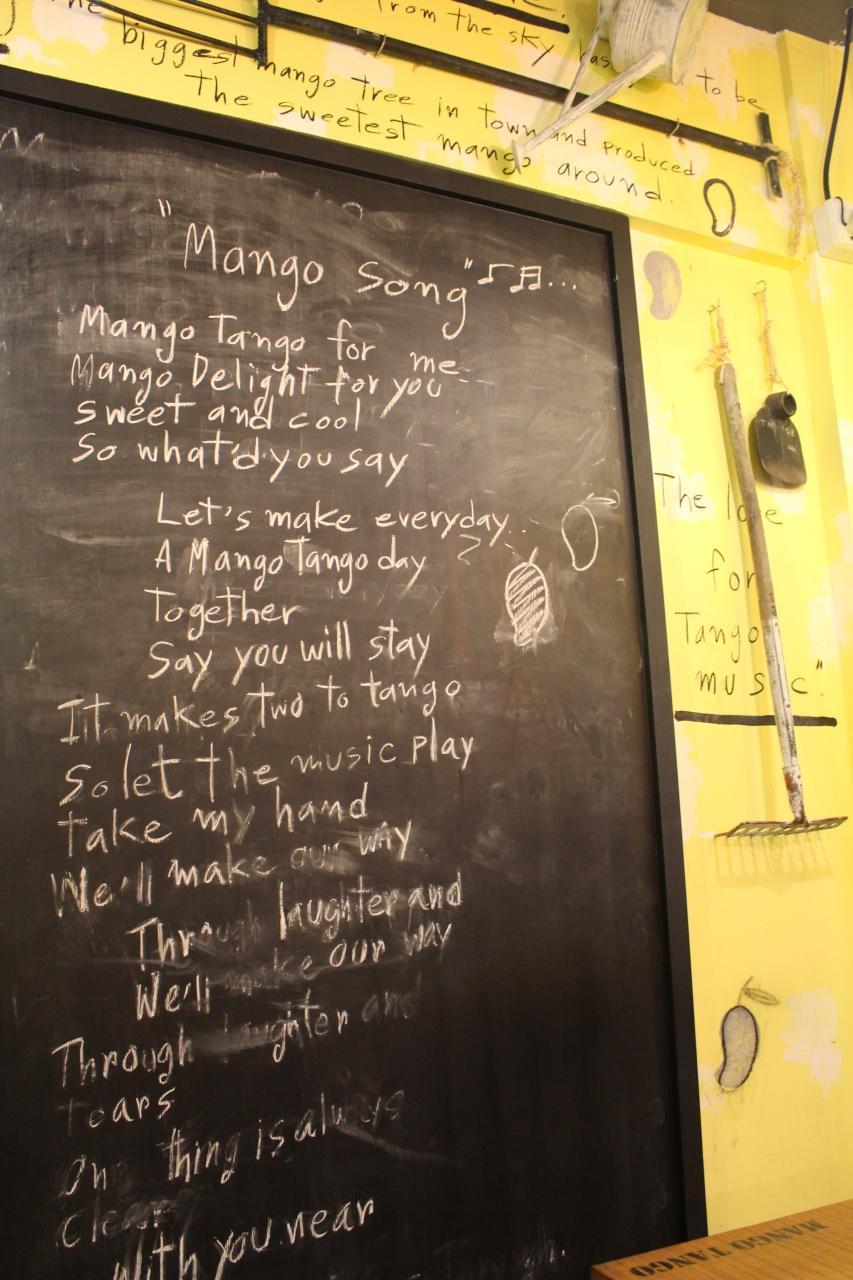 The from the sky has to be
biggest mango tree in town and produced
The sweetest mango around.
"Mango Song"...
Mango Tango for me
Mango Delight for you
sweet and cool
So what'd you say
Let's make everyday..
A Mango Tango day ?
Together
Say you will stay
It makes two to tango
So let the music play
take my hand
We'll make our way
Through laughter and
We'll make our way
Through laughter and
tears
One thing is always
clear
With you near
Through.
The love
for
Tango
music".
MANGO TANGO